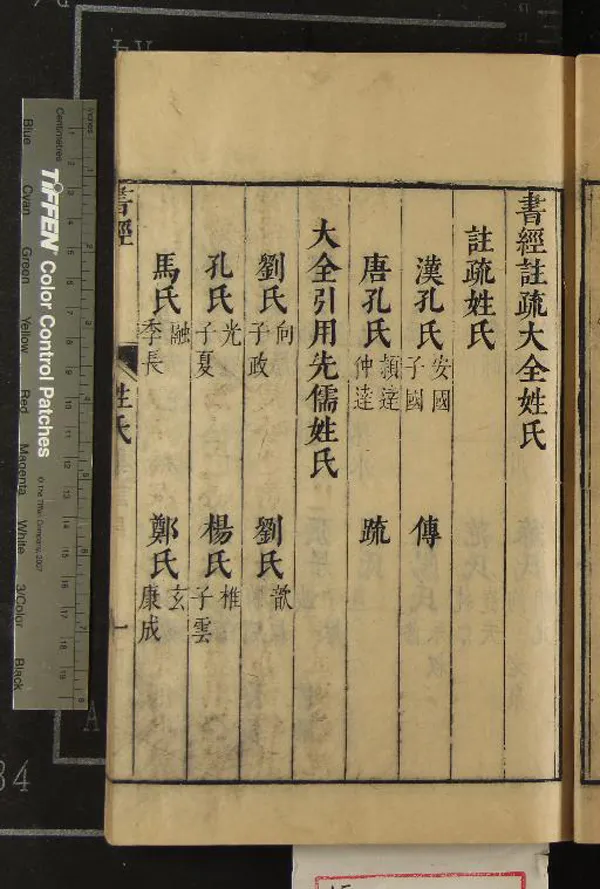 書經註疏大全姓氏
註疏姓氏
漢孔氏 安國 子國 傳
唐孔氏 頴達 仲達 疏
大全引用先儒姓氏
劉氏 向 子政 劉氏 歆
孔氏 光 子夏 楊氏 椎 子雲
馬氏 融 季長 鄭氏 玄 康成
書經 姓氏 一
Inches
Centimetres
TIFFEN Color Control Patches
© The Tiffen Company, 2007
Blue Cyan Green Yellow Red Magenta White 3/Color Black
A